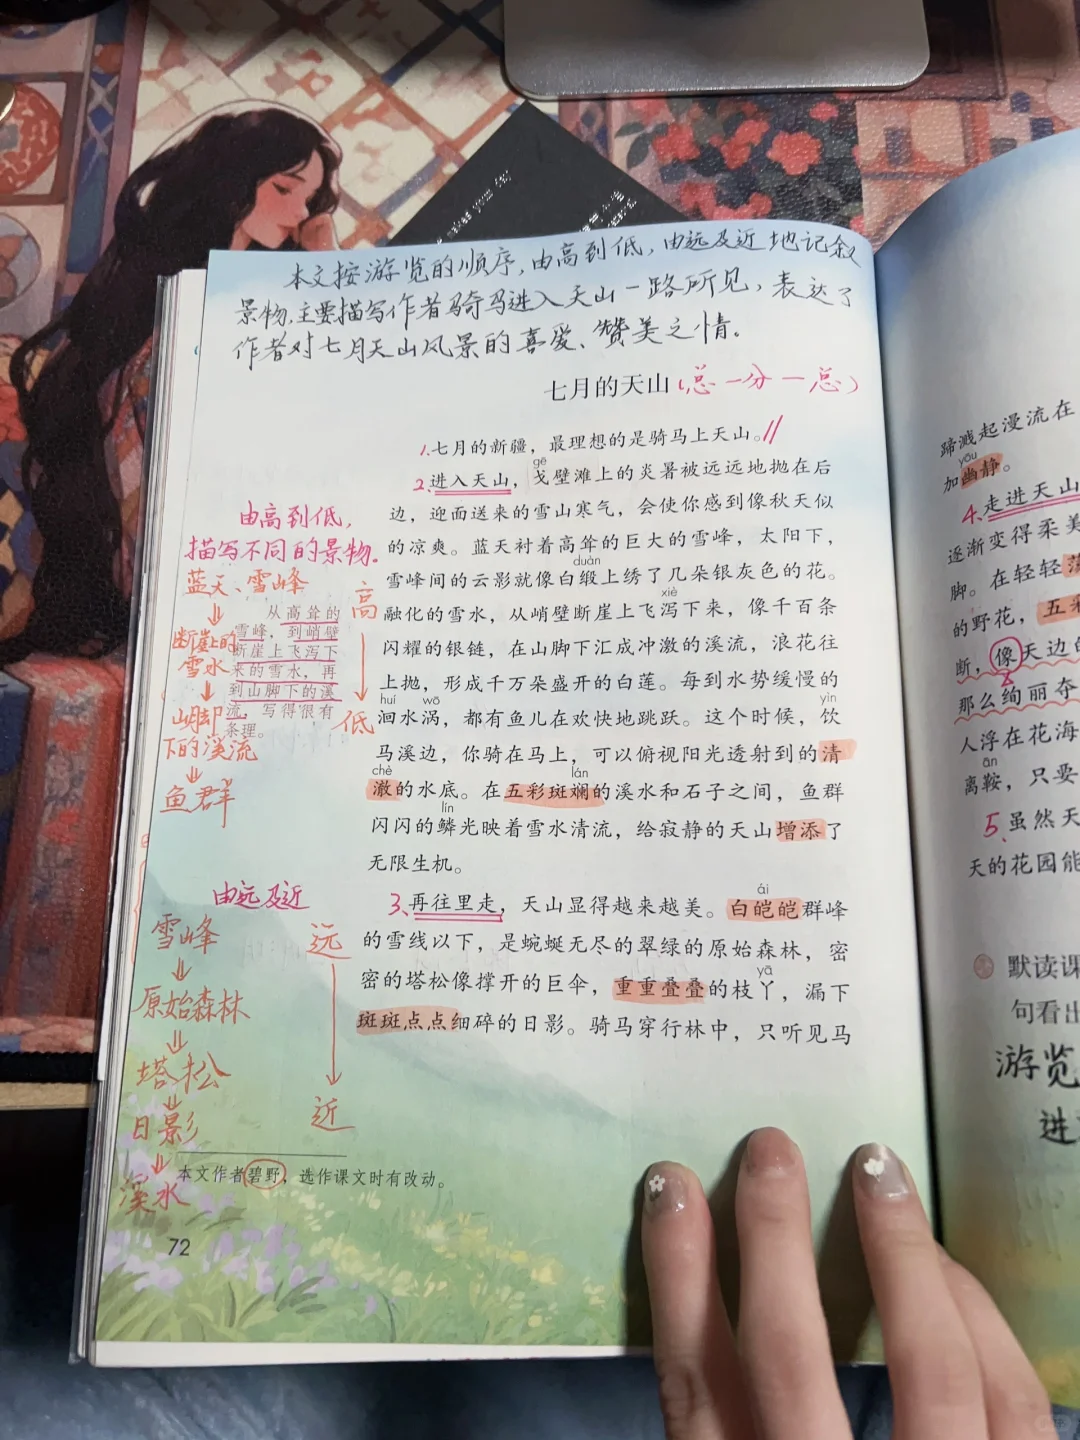 本文按游览的顺序,由高到低,由远及近地记叙
景物,主要描写作者骑马进入天山一路所见,表达了
作者对七月天山风景的喜爱、赞美之情。
七月的天山(总一分一总)
1.七月的新疆，最理想的是骑马上天山。
gē
2、进入天山，戈壁滩上的炎暑被远远地抛在后
边，迎面送来的雪山寒气，会使你感到像秋天似
的凉爽。蓝天衬着高耸的巨大的雪峰，太阳下，
duàn
雪峰间的云影就像白缎上绣了几朵银灰色的花。
xiè
融化的雪水，从峭壁断崖上飞泻下来，像千百条
闪耀的银链，在山脚下汇成冲激的溪流，浪花往
上抛，形成千万朵盛开的白莲。每到水势缓慢的
huí wō yìn
洄水涡，都有鱼儿在欢快地跳跃。这个时候，饮
马溪边，你骑在马上，可以俯视阳光透射到的清
chè lán
澈的水底。在五彩斑斓的溪水和石子之间，鱼群
lín
闪闪的鳞光映着雪水清流，给寂静的天山增添了
无限生机。
ái
3、再往里走，天山显得越来越美。白皑皑群峰
的雪线以下，是蜿蜒无尽的翠绿的原始森林，密
密的塔松像撑开的巨伞，重重叠叠的枝丫，漏下
yā
斑斑点点细碎的日影。骑马穿行林中，只听见马
由高到低,
描写不同的景物.
蓝天、雪峰
断崖上的
雪水
山脚
下的溪流
鱼群
高
低
从高耸的
雪峰，到峭壁
断崖上飞泻下
来的雪水，再
到山脚下的溪
流，写得很有
条理。
由远及近
雪峰
原始森林
塔松
日影
溪水
远
近
本文作者碧野，选作课文时有改动。
72
蹄溅起漫流在
yōu
加幽静。
4、走进天山
逐渐变得柔美
脚。在轻轻
的野花，五彩
断，像天边的
那么绚丽夺
人浮在花海
ān
离鞍，只要
5、虽然天
天的花园能
默读课
句看出
游览
进